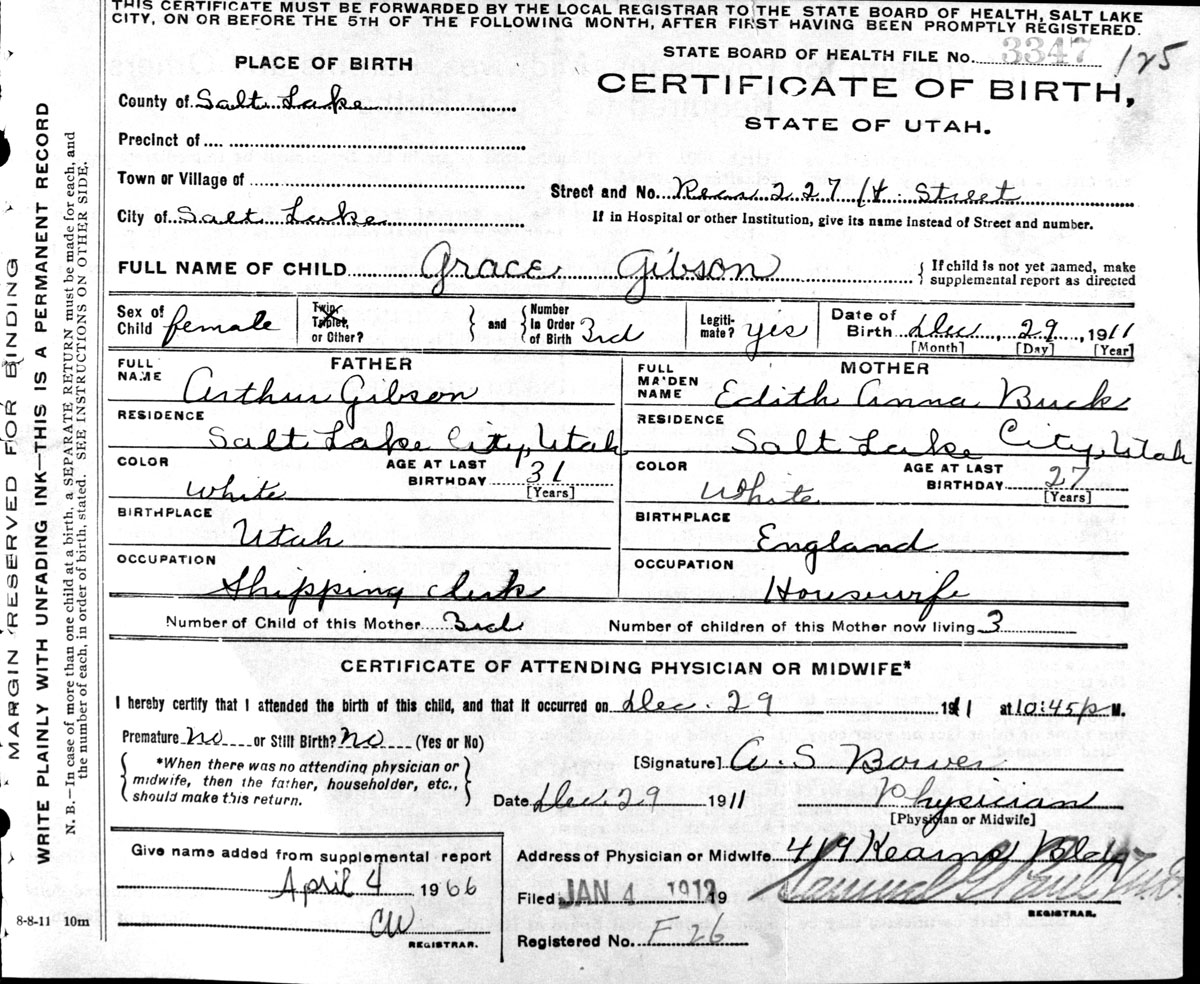 THIS CERTIFICATE MUST BE FORWARDED BY THE LOCAL REGISTRAR TO THE STATE BOARD OF HEALTH, SALT LAKE
CITY, ON OR BEFORE THE 5TH OF THE FOLLOWING MONTH, AFTER FIRST HAVING BEEN PROMPTLY REGISTERED.
STATE BOARD OF HEALTH FILE No. 3347 125
PLACE OF BIRTH
CERTIFICATE OF BIRTH,
STATE OF UTAH.
County of Salt Lake
Precinct of
Town or Village of
Street and No. Rear 227 H Street
City of Salt Lake
If in Hospital or other Institution, give its name instead of Street and number.
FULL NAME OF CHILD Grace Gibson
{ If child is not yet named, make
supplemental report as directed
Sex of Child female
Twin, Triplet, or Other? } and { Number In Order of Birth 3rd
Legiti-mate? yes
Date of Birth Dec 29, 1911
[Month] [Day] [Year]
FATHER
FULL NAME Arthur Gibson
RESIDENCE
Salt Lake City, Utah
COLOR White
AGE AT LAST BIRTHDAY 31
[Years]
BIRTHPLACE
Utah
OCCUPATION
Shipping clerk
MOTHER
FULL MAIDEN NAME Edith Anna Buck
RESIDENCE
Salt Lake City, Utah
COLOR White
AGE AT LAST BIRTHDAY 27
[Years]
BIRTHPLACE
England
OCCUPATION
Housewife
Number of Child of this Mother 3rd
Number of children of this Mother now living 3
CERTIFICATE OF ATTENDING PHYSICIAN OR MIDWIFE*
I hereby certify that I attended the birth of this child, and that it occurred on Dec. 29 1911 at 10:45 p M.
Premature No or Still Birth? No (Yes or No)
{ *When there was no attending physician or
midwife, then the father, householder, etc.,
should make this return. }
[Signature] A. S. Bower
Date Dec. 29 1911
Physician
[Physician or Midwife]
Give name added from supplemental report
April 4 1966
CW
REGISTRAR.
Address of Physician or Midwife 419 Kearns Bldg
Filed JAN 4 1912 19
Samuel G. Paul M.D.
REGISTRAR.
Registered No. F 26
8-8-11 10m
MARGIN RESERVED FOR BINDING
WRITE PLAINLY WITH UNFADING INK—THIS IS A PERMANENT RECORD
N. B.—In case of more than one child at a birth, a SEPARATE RETURN must be made for each, and
the number of each, in order of birth, stated. SEE INSTRUCTIONS ON OTHER SIDE.